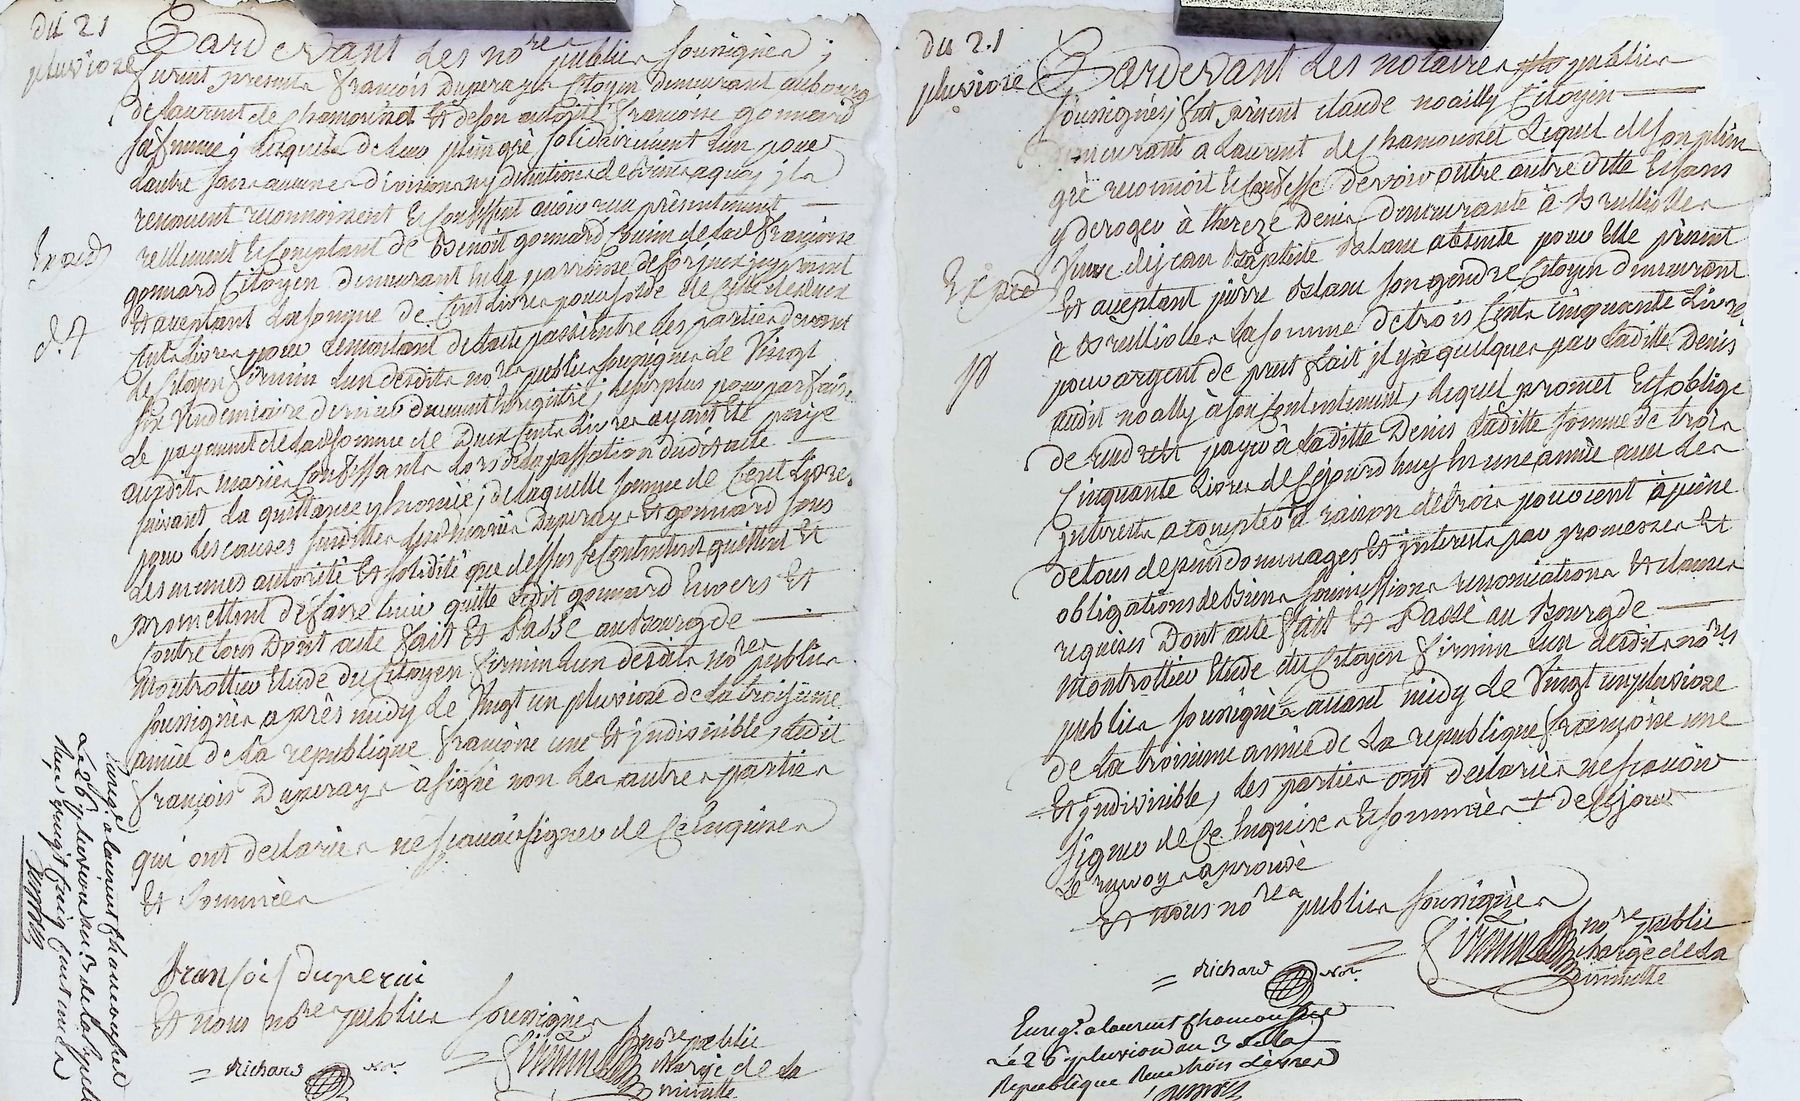 du 21
pluviose
Pardevant les no.res publics soussignés ;
furent presents françois Duperay citoyen demeurant au bourg
de laurent de chamousset Et de son autorité françoise gonnard
sa femme ; lesquels de leur plein gré solidairement l'un pour
l'autre sans aucunes divisions ny discutions de biens a quoy ils
renoncent reconnoissent Et confessent avoir reçu présentement
réellement Et comptant de Benoit gonnard Cousin de lad. françoise
gonnard Citoyen demeurant en la parroisse de
Et acceptant la somme de Cent Livres pour solde de Celle de deux
Cents Livres pour le montant de l'acte passé entre les parties devant
le Citoyen firmin l'un desdits no.res publics soussignés le Vingt
six Vendemiaire dernier duement Enregistré ; le surplus pour parfaire
le payement de lad. somme de Deux Cents Livres ayant été payé
auxdits mariés Confessants lors de la passation dudit acte
suivant la quittance y énoncée ; de laquelle somme de Cent Livres
pour les causes susdittes lesd. mariés Duperay Et gonnard sous
les memes autorité Et solidité que dessus se Contentent quittent Et
promettent de faire tenir quitte ledit gonnard Envers Et
Contre tous Dont acte fait Et Passé au Bourg de
Montrottier Etude du Citoyen firmin L'un desdits no.res publics
soussignés après midy Le Vingt un pluviose de La troisieme
année de La republique françoise une Et jndivisible, Ledit
françois Duperay a signé non Les autres parties
qui ont declarées ne sçavoir signer de Ce Enquises
Et sommées
fransois duperai
Et nous no.res publics soussignés
= Richard no.re
= Firmin no.re public
chargé de La
minutte
Exped
d. t
Enreg.é a laurent chamousset
Le 26 pluviose an 3 de la republique
Reçu vingt cinq sous
du 21
pluviose
Pardevant Les notaires publics
soussignés, fut présent claude noailly Citoyen
demeurant a Laurent de chamousset Lequel de son plein
gré reconnoit Et confesse devoir outre autre dette Et sans
y deroger à thereze Denis demeurante à Brullioles
Veuve de jean Baptiste Blanc absente pour Elle présent
Et acceptant pierre Blanc son gendre Citoyen demeurant
à Brullioles La somme de trois Cents cinquante Livres
pour argent de pret fait il y a quelques par Laditte Denis
audit noally à son Contentement, Lequel promet Et s'oblige
de rendre Et payer à laditte Denis Laditte somme de trois
Cinquante Livres de Ce jourd'huy En une année avec Les
jnterets a compter à raison de trois pour cent à peine
de tous depens dommages Et jnterets par promesses Et
obligations de Biens soumissions renonciations Et clauses
requises Dont acte fait Et Passé au Bourg de
Montrottier Etude du Citoyen firmin l'un desdits no.res
publics soussignés avant midy Le Vingt un pluviose
de La troisieme année de La republique françoise une
Et jndivisible, Les parties ont declarées ne sçavoir
signer de Ce Enquises Et sommées + de Ce jour
Le renvoy aprouvé
Et nous no.res publics soussignés
Firmin no.re public
chargé de La
minutte
= Richard no.re
Exped
Enreg.é a laurent chamousset
Le 26 pluviose an 3 de la
Republique Reçu trois Livres